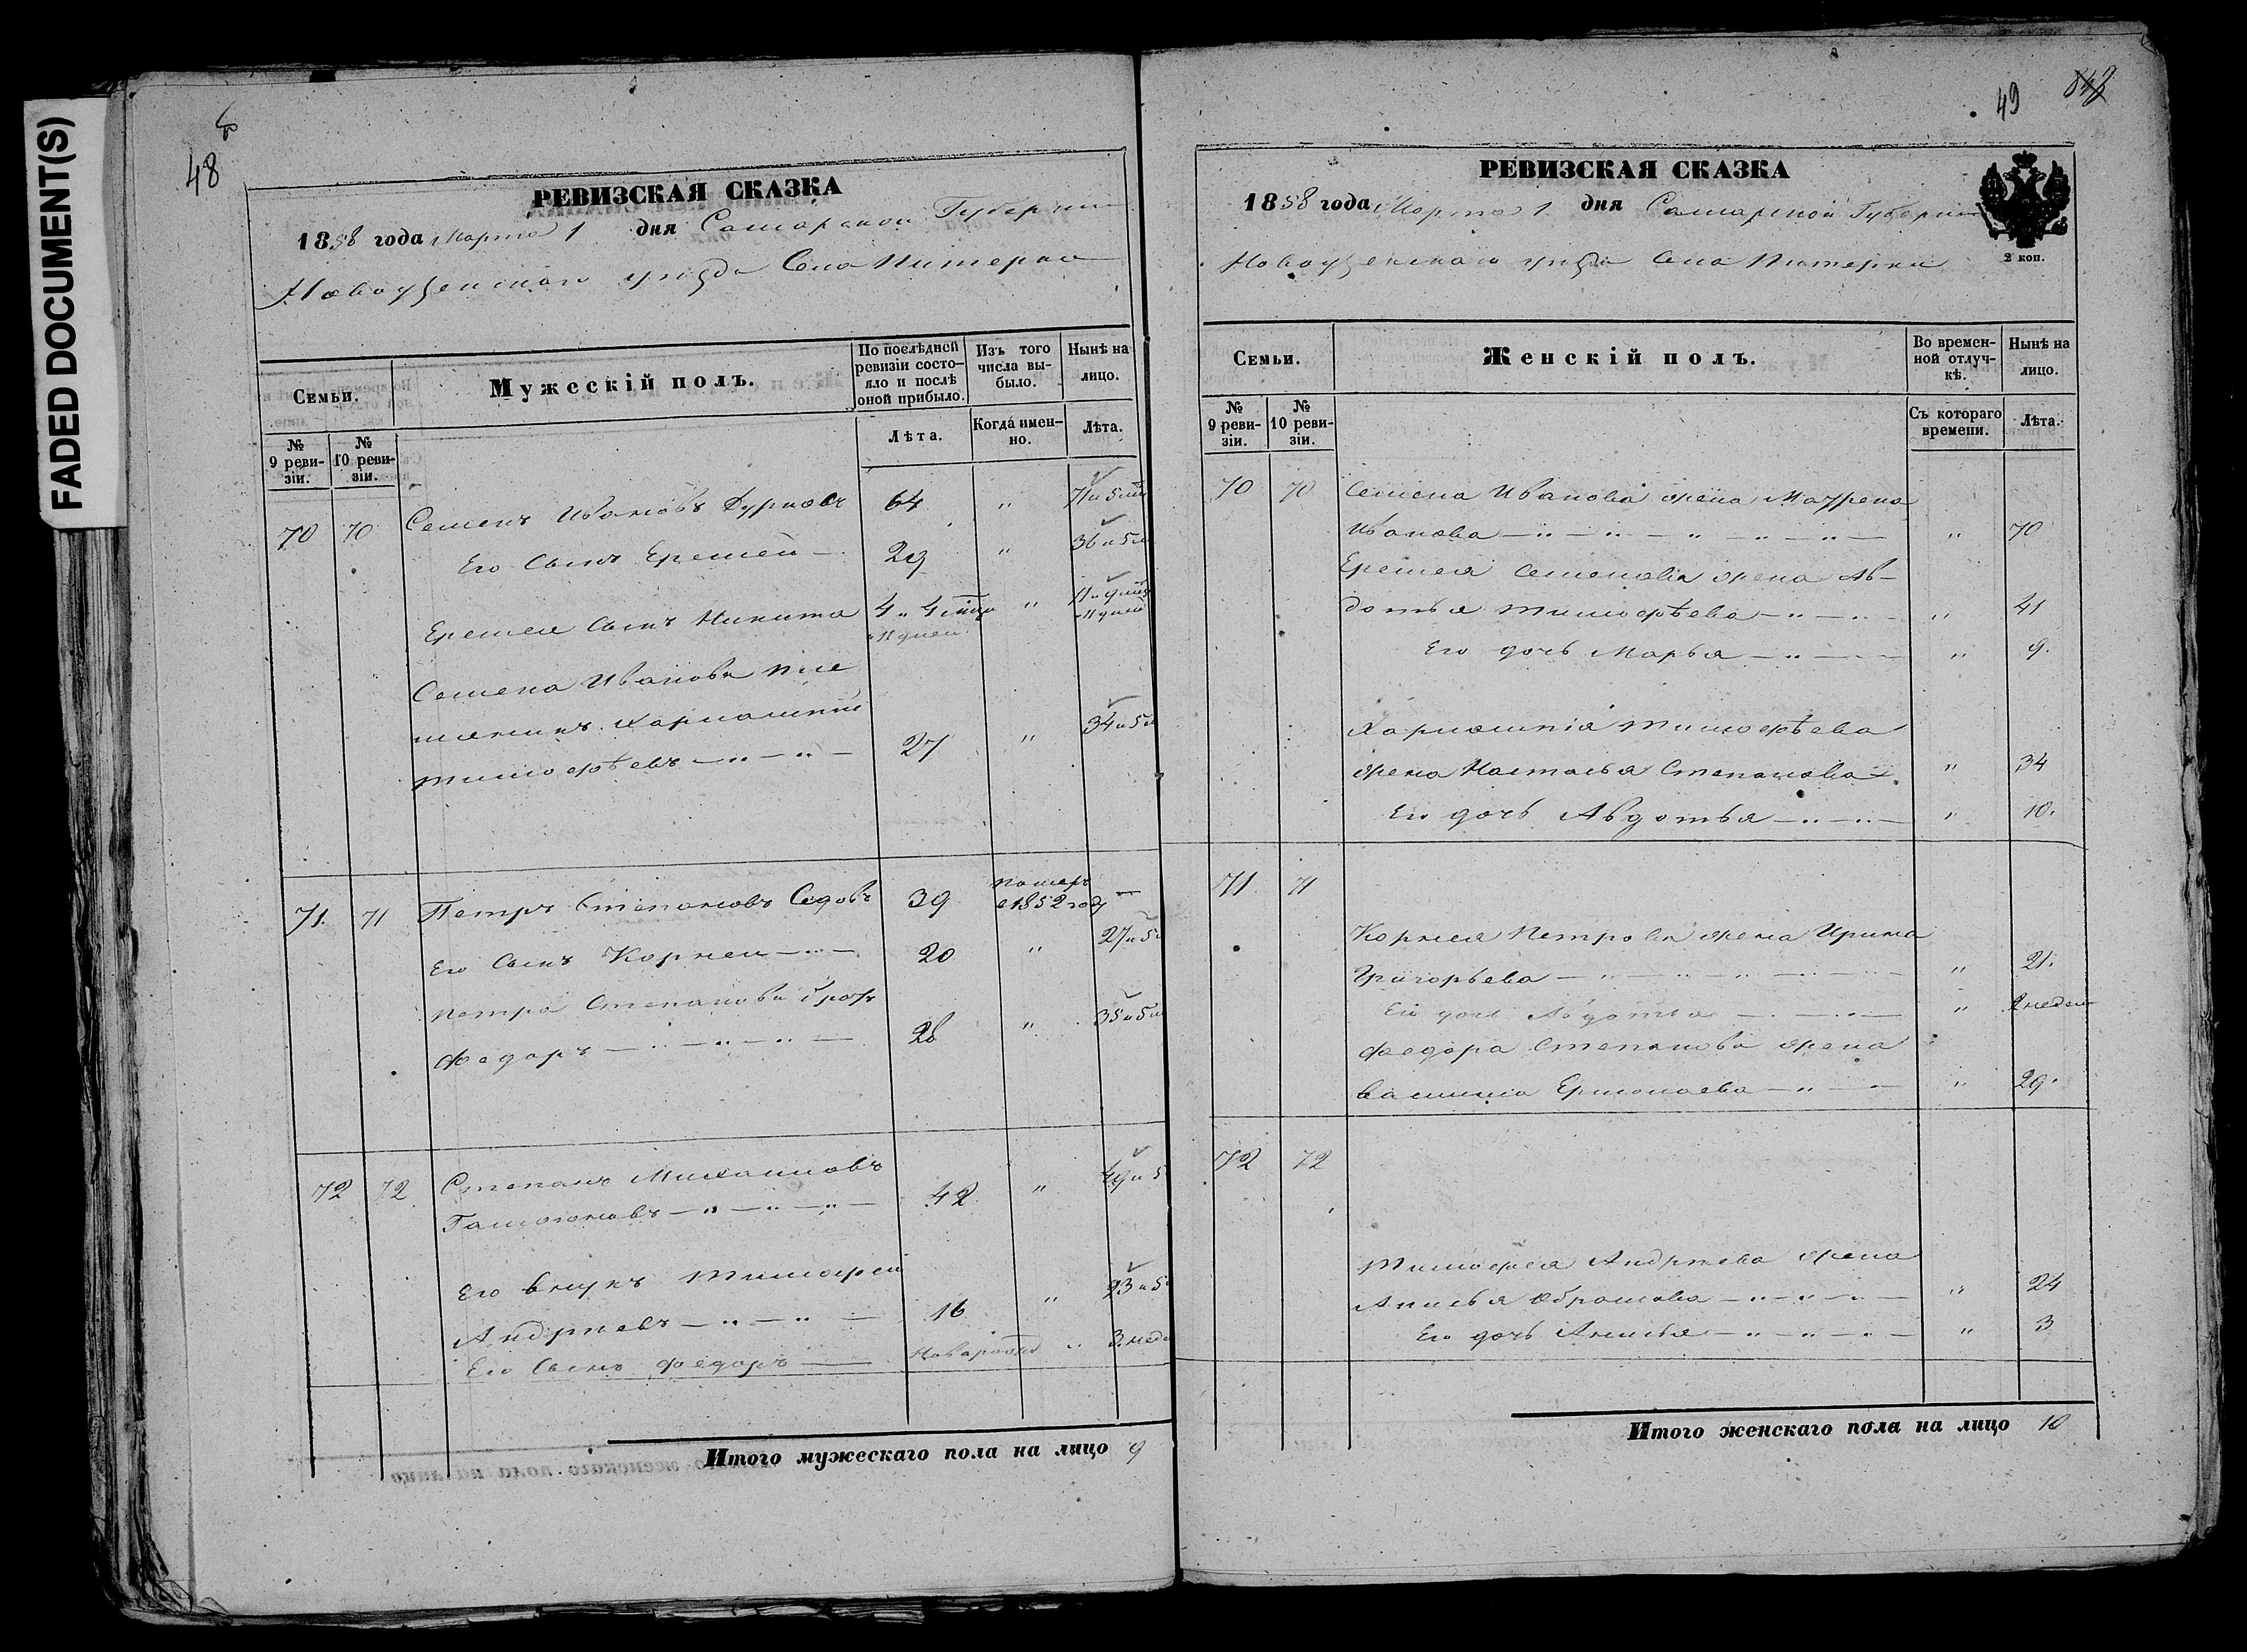 FADED DOCUMENT(S)
48
РЕВИЗСКАЯ СКАЗКА
1858 года Марта 1 дня Самарской Губернии
Новоузенскаго уезда Села Питерка
Семьи.
Мужескій полъ.
По послѣдней ревизіи состояло и послѣ оной прибыло.
Изъ того числа выбыло.
Нынѣ на лицо.
№ 9 ревизіи.
№ 10 ревизіи.
Лѣта.
Когда именно.
Лѣта.
70 70 Семенъ Ивановъ 64 " 71 и 5
Его Сынъ Еремей — 29 " 36 и 5
Еремея Сынъ Никита 4 и 4 " 11 и 9
и 11 дней и 11 дней
Семена Иванова пле
мянникъ Харлампій
Тимофѣевъ — " — " — 27 " 34 и 5
71. 71 Петръ Степановъ Седовъ 39 помер в 1852 году —
Его Сынъ Корней — " — 20 " 27 и 5
Петра Степанова братъ
Федоръ — " — " — " — 28 " 35 и 5
72 72 Степанъ Михаиловъ
— " — " — " — 42 " 49 и 5
Его внукъ Тимофей
Андреевъ — " — " — 16 " 23 и 5
Его Сынъ Федоръ — " 3 неде
Итого мужескаго пола на лицо 9
49
РЕВИЗСКАЯ СКАЗКА
1858 года Марта 1 дня Самарской Губернии
2 коп.
Новоузенскаго уезда Села Питерки
Семьи.
Женскій полъ.
Во временной отлучкѣ.
Нынѣ на лицо.
№ 9 ревизіи.
№ 10 ревизіи.
Съ котораго времени.
Лѣта.
70 70 Семена Иванова жена Маурена
Иванова — " — " — " — " — " — " 70
Еремея Семенова жена Ав-
дотья Тимофѣева — " — " — " 41
Его дочь Марья — " — " 9.
Харлампія Тимофѣева
жена Настасья Степанова — " 34
Его дочь Авдотья — " — " — " 10.
71 71
Корнея Петрова жена Ирина
Григорьева — " — " — " — " — " 21.
Его дочь Авдотья — " — " 2 недели
Федора Степанова жена
Ермолаева — " — " 29.
72 72
Тимофея Андреева жена
Анисья Абрамова — " — " — " 24
Его дочь Анисья — " — " — " — " 3
Итого женскаго пола на лицо 10